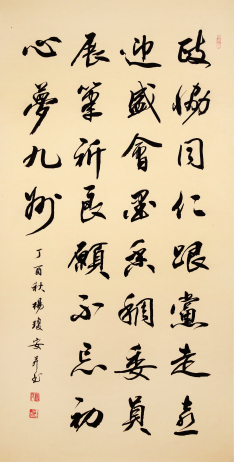 政協同仁跟黨走喜
迎盛會墨香稠委員
展筆祈良願不忘初
心夢九州
丁酉秋楊瓊安并書